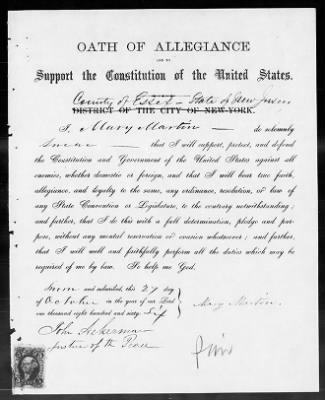 OATH OF ALLEGIANCE
AND TO
Support the Constitution of the United States.
County of Essex — State of New Jersey
DISTRICT OF THE CITY OF NEW-YORK.
I, Mary Martin — do solemnly
swear — that I will support, protect, and defend
the Constitution and Government of the United States against all
enemies, whether domestic or foreign, and that I will bear true faith,
allegiance, and loyalty to the same, any ordinance, resolution, or law of
any State Convention or Legislature, to the contrary notwithstanding;
and further, that I do this with a full determination, pledge and pur-
pose, without any mental reservation or evasion whatsoever; and further,
that I will well and faithfully perform all the duties which may be
required of me by law. So help me God.
Sworn and subscribed, this 27 day
of October in the year of our Lord
one thousand eight hundred and sixty-six
Mary Martin
John
Justice of the Peace